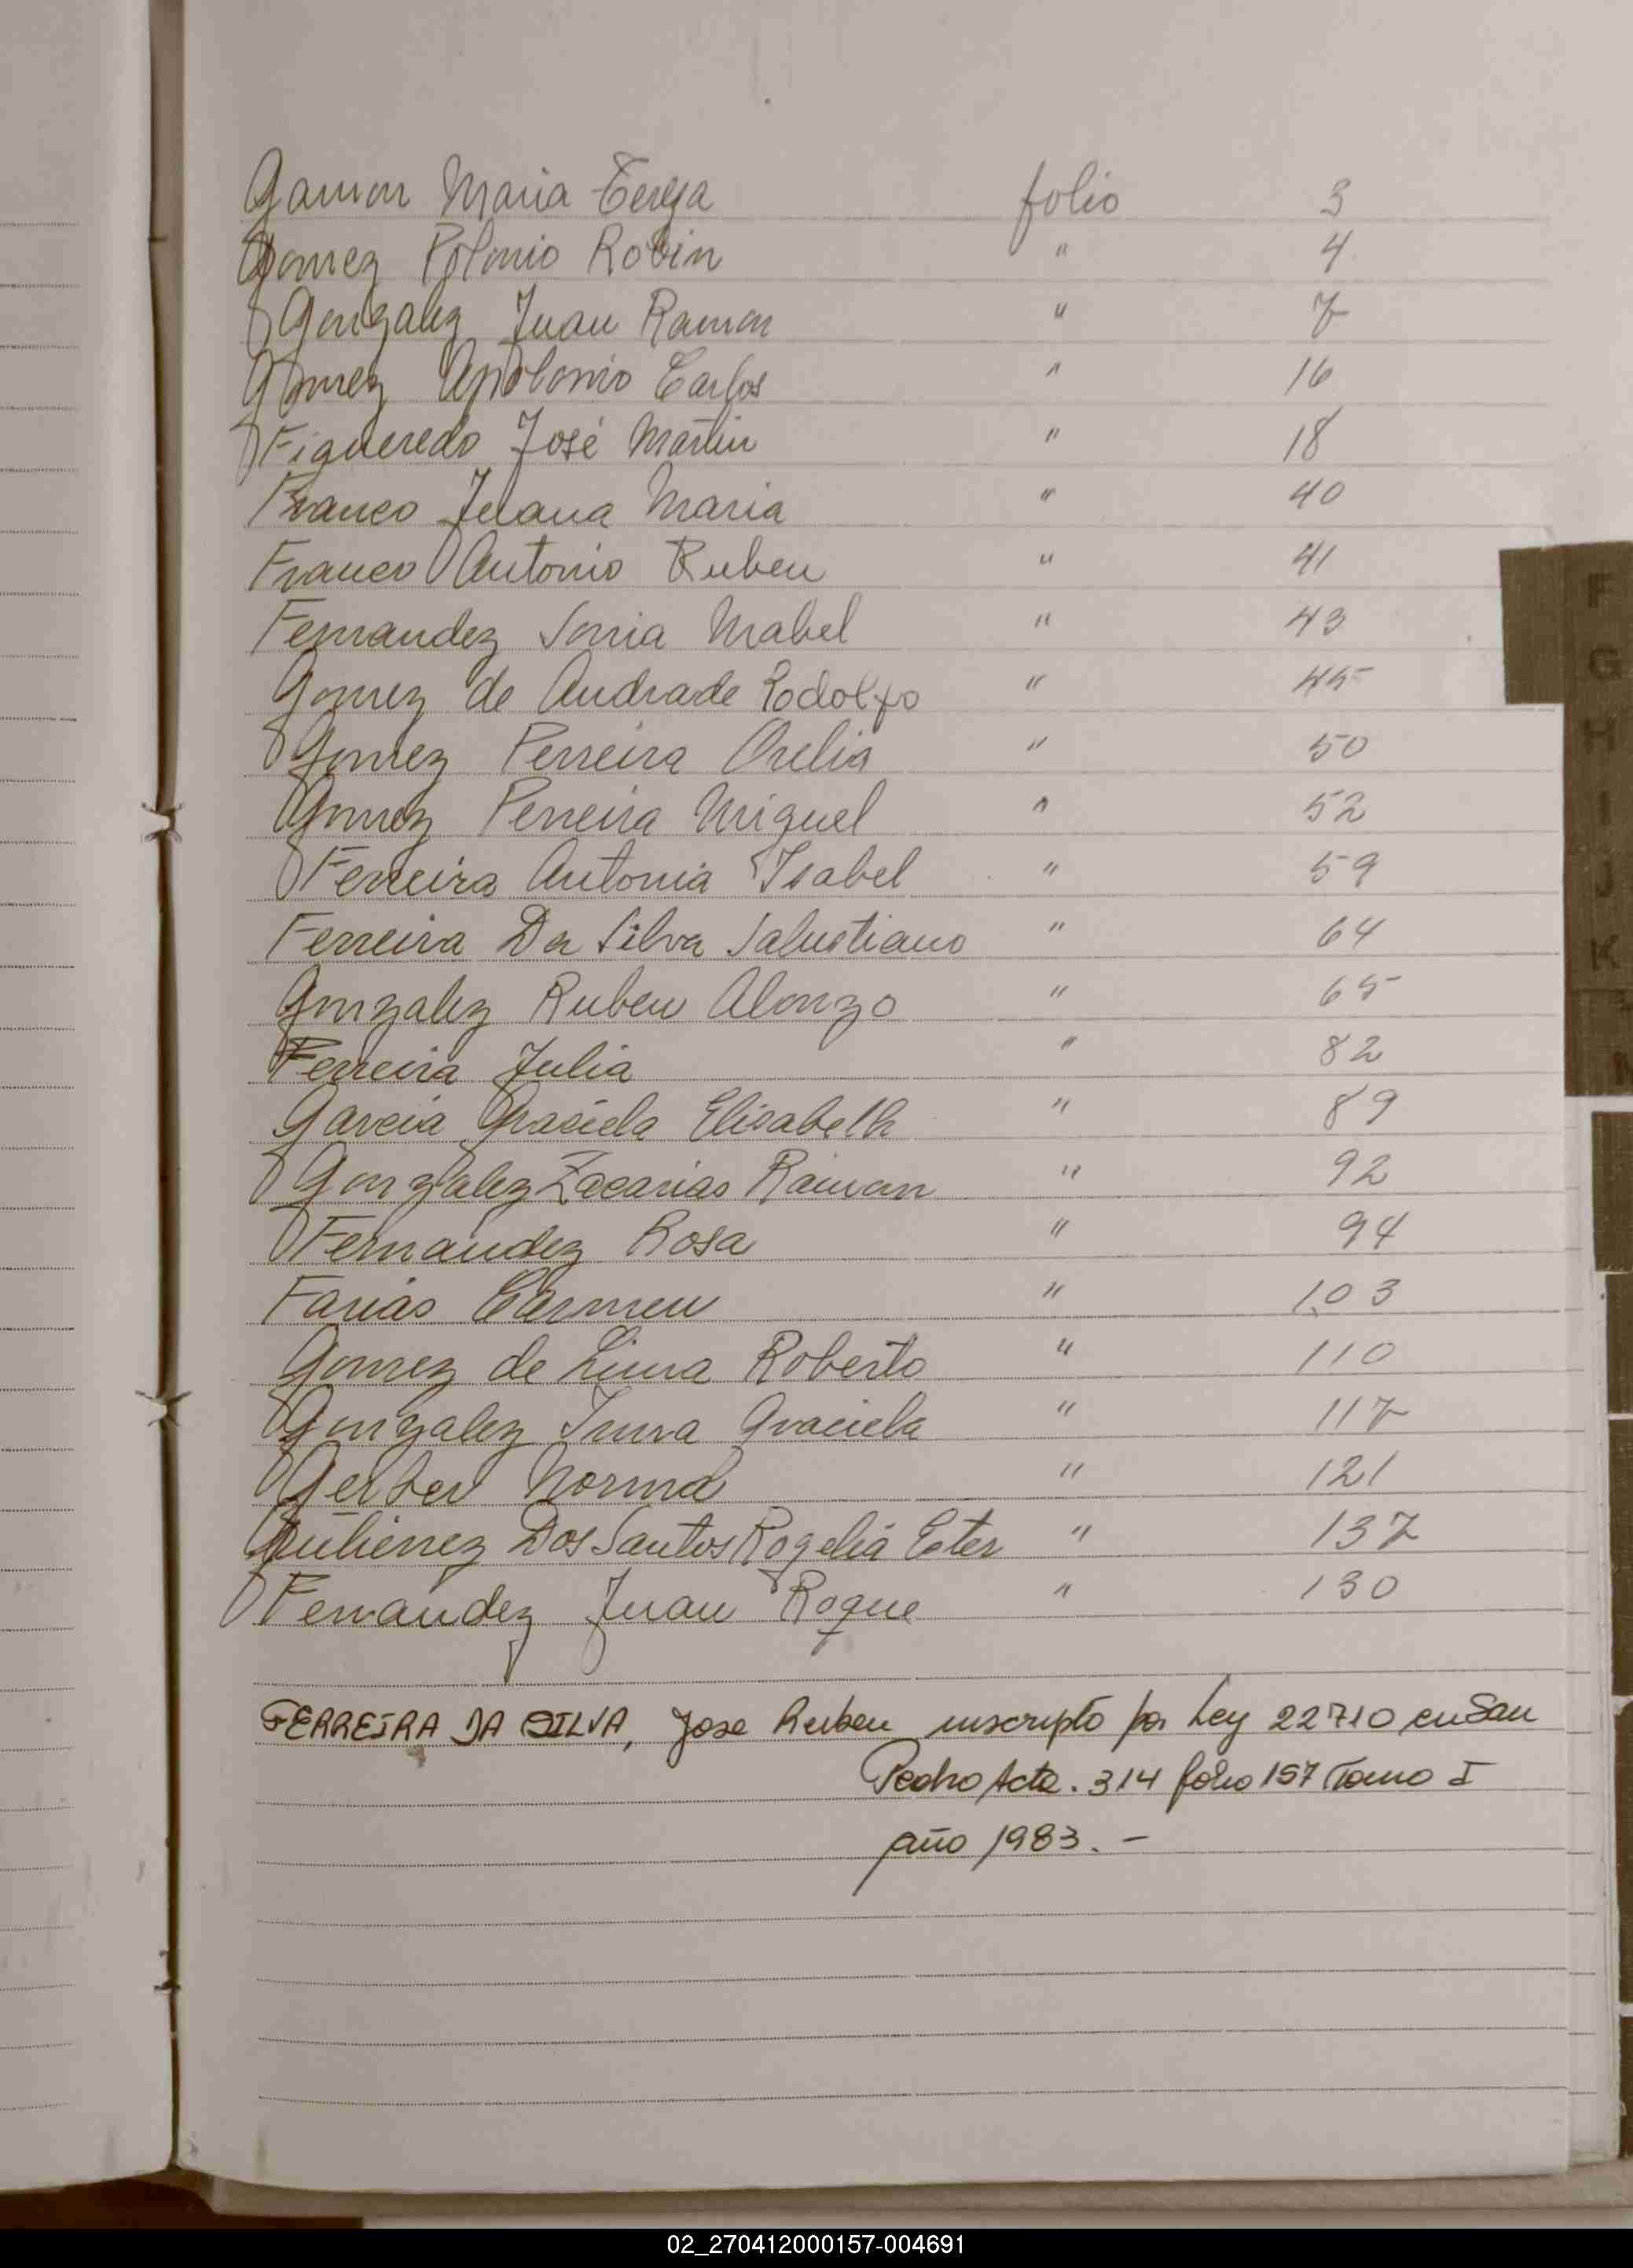 Gamon Maria Teresa folio 3
Gomez Polonio Robin " 4
Gonzalez Juan Ramon " 7
Gomez Apolonio Carlos " 16
Figueredo José Martin " 18
Franco Juana Maria " 40
Franco Antonio Ruben " 41
Fernandez Sonia Mabel " 43
Gomez de Andrade Rodolfo " 45
Gomez Perreira Orelia " 50
Gomez Perreira Miguel " 52
Ferreira Antonia Isabel " 59
Ferreira Da Silva Salustiano " 64
Gonzalez Ruben Alonzo " 65
Ferreira Julia " 82
Garcia Graciela Elisabeth " 89
Gonzalez Zacarias Ramon " 92
Fernandez Rosa " 94
Farias Carmen " 103
Gomez de Lima Roberto " 110
Gonzalez Irma Graciela " 117
Gerber Norma " 121
Gutierrez Dos Santos Rogelia Ester " 137
Fernandez Juan Roque " 130
FERREIRA DA SILVA, Jose Ruben inscripto por Ley 22710 en San
Pedro Acta. 314 folio 157 Tomo I
año 1983. -
F
G
H
I
J
K
02_270412000157-004691